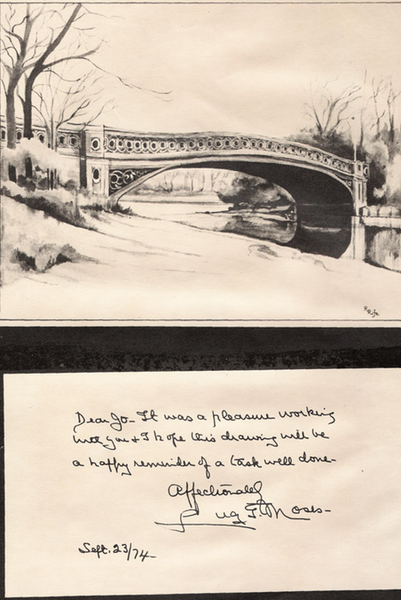 Dear Jo- It was a pleasure working
with you & I hope this drawing will be
a happy reminder of a task well done-
Affectionately
Moses-
Sept. 23/74-